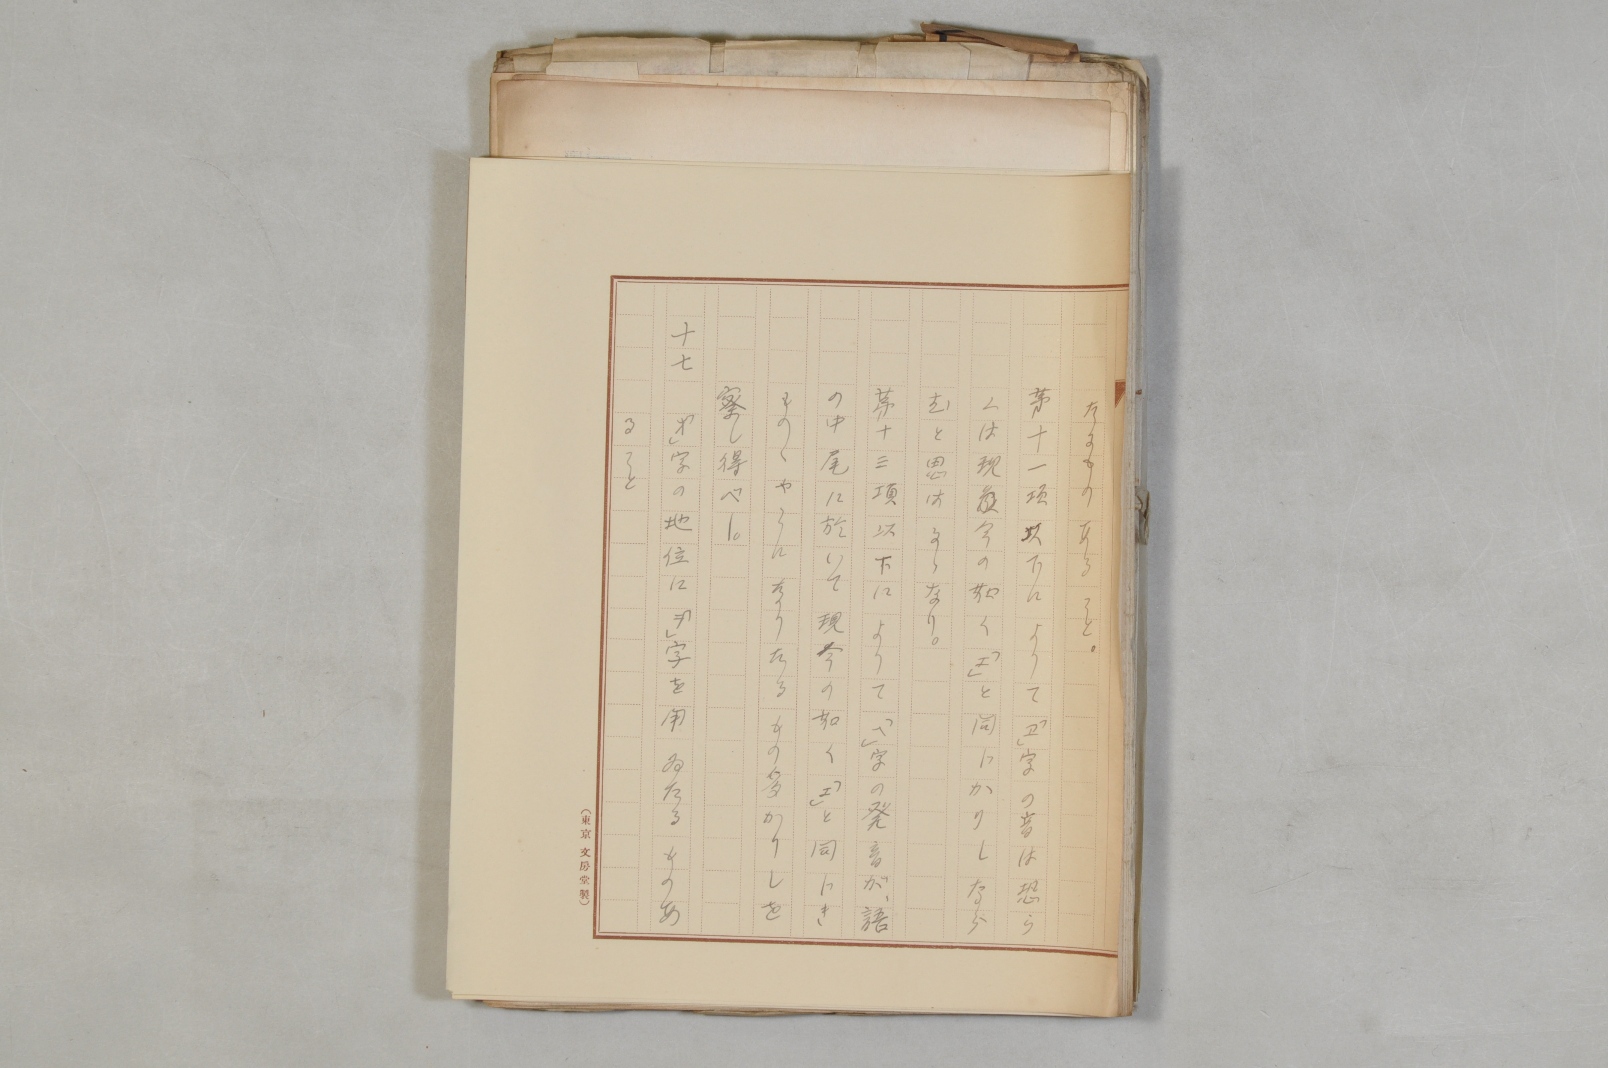 たるものあること。
第十一項以下によりて「ヱ」字の音は恐ら
くは現今の如く「エ」と同じかりしなら
むと思はるゝなり。
第十三項以下によりて「へ」字の発音が、語
の中尾に於いて現今の如く「エ」と同じき
ものゝやうになりたるもの多かりしを
察し得べし。
十七 「オ」字の地位に「ヲ」字を用ゐたるものあ
ること
(東京 文房堂製)